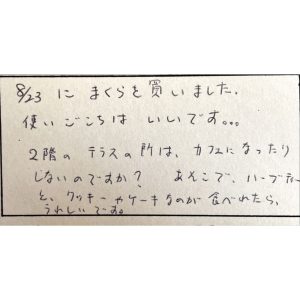 8/23 に まくらを買いました.
使いごこちは いいです。。。
2階の テラスの所は、カフェになったり
しないのですか？ あそこで、ハーブティー
と、クッキーやケーキなのが食べれたら、
うれしいです。